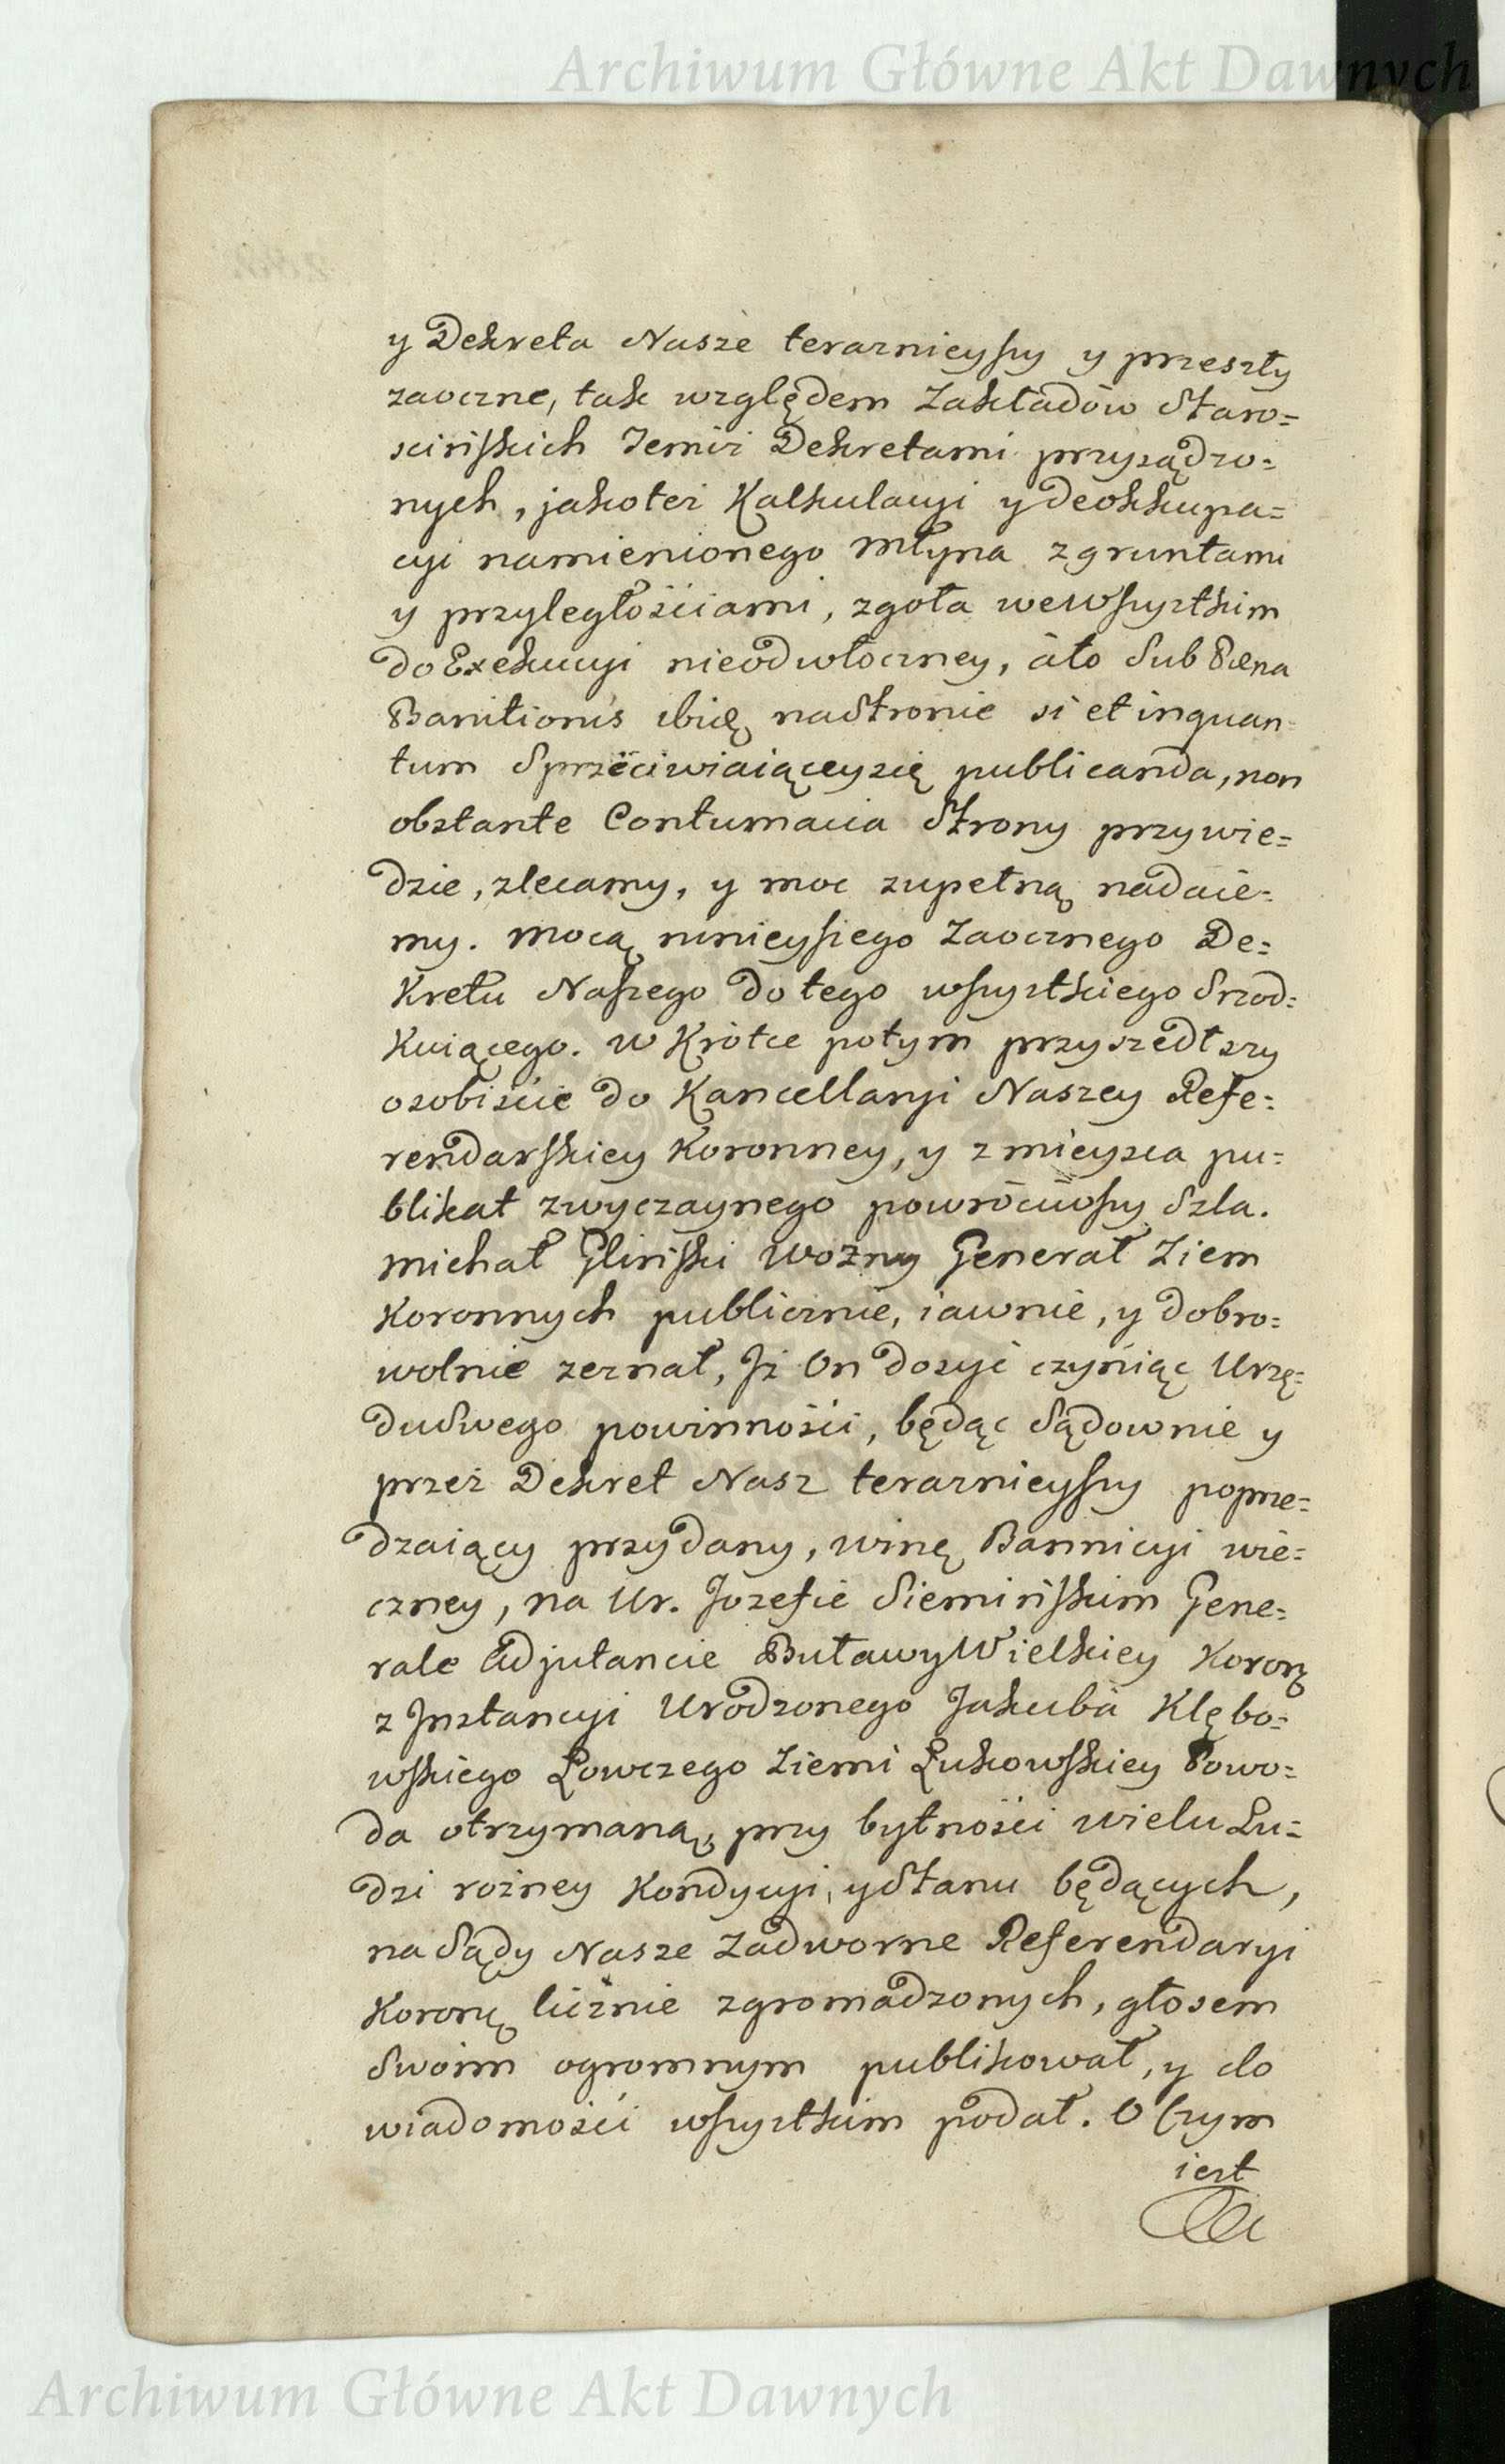 Archiwum Główne Akt Dawnych
y Dekreta Nasze teraznieyszy y przeszły
zaoczne, tak względem Zakładow Staro=
scinskich Temiż Dekretami przysądzo=
nych, jakoteż Kalkulacyi y deokkupa=
cyi namienionego Młyna z gruntami
y przyległościami, zgoła we wszystkim
do Exekucyi nieodwłoczney, a to Sub Pœna
Banitionis ibię na Stronie si et inquan
tum Sprzeciwiaiącey się publicanda, non
obstante Contumacia Strony przywie=
dzie, zlecamy, y moc zupełną nadaie=
my. Mocą ninieyszego Zaocznego De=
kretu Naszego do tego wszystkiego Srzod=
kuiącego. w Krótce potym przyszedłszy
osobiście do Kancellaryi Naszey Refe=
rendarskiey Koronney, y z mieysca pu=
blikat zwyczaynego powróciwszy Szla.
Michał Glinski Wozny Generał Ziem
Koronnych publicznie, iawnie, y dobro=
wolnie zeznał, Jż On dosyć czyniąc Urzę=
du Swego powinności, będąc Sądownie y
przez Dekret Nasz teraznieyszy poprze=
dzaiący przydany, winę Bannicyi wie=
czney, na Ur. Jozefie Siemińskim Gene=
rale Adjutancie Buławy Wielkiey Koron
z Jnstancyi Urodzonego Jakuba Klębo=
wskiego Łowczego Ziemi Łukowskiey Powo=
da otrzymaną, przy bytności wielu Lu=
dzi rożney Kondycyi, y Stanu będących,
na Sądy Nasze Zadworne Referendaryi
Koron licznie zgromadzonych, głosem
Swoim ogromnym publikował, y do
wiadomości wszystkim podał. O Czym
iest
Archiwum Główne Akt Dawnych